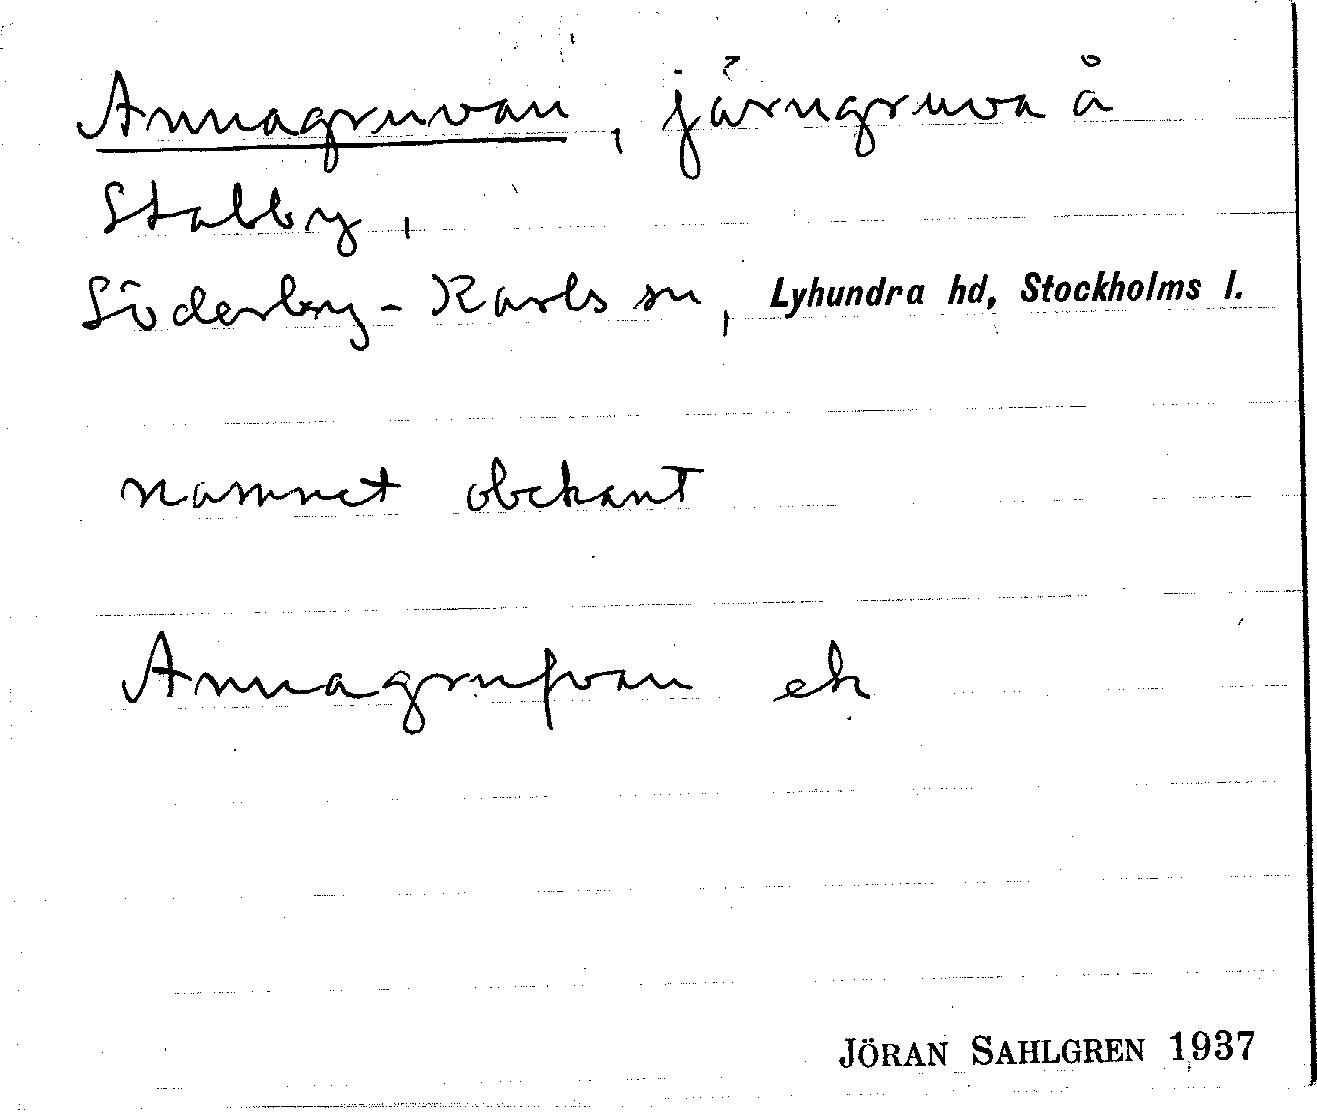 Annagruvan, järngruva å
Stabby,
Söderby-Karls sn, Lyhundra hd, Stockholms l.
namnet obekant
Annagrufvan ek
JÖRAN SAHLGREN 1937